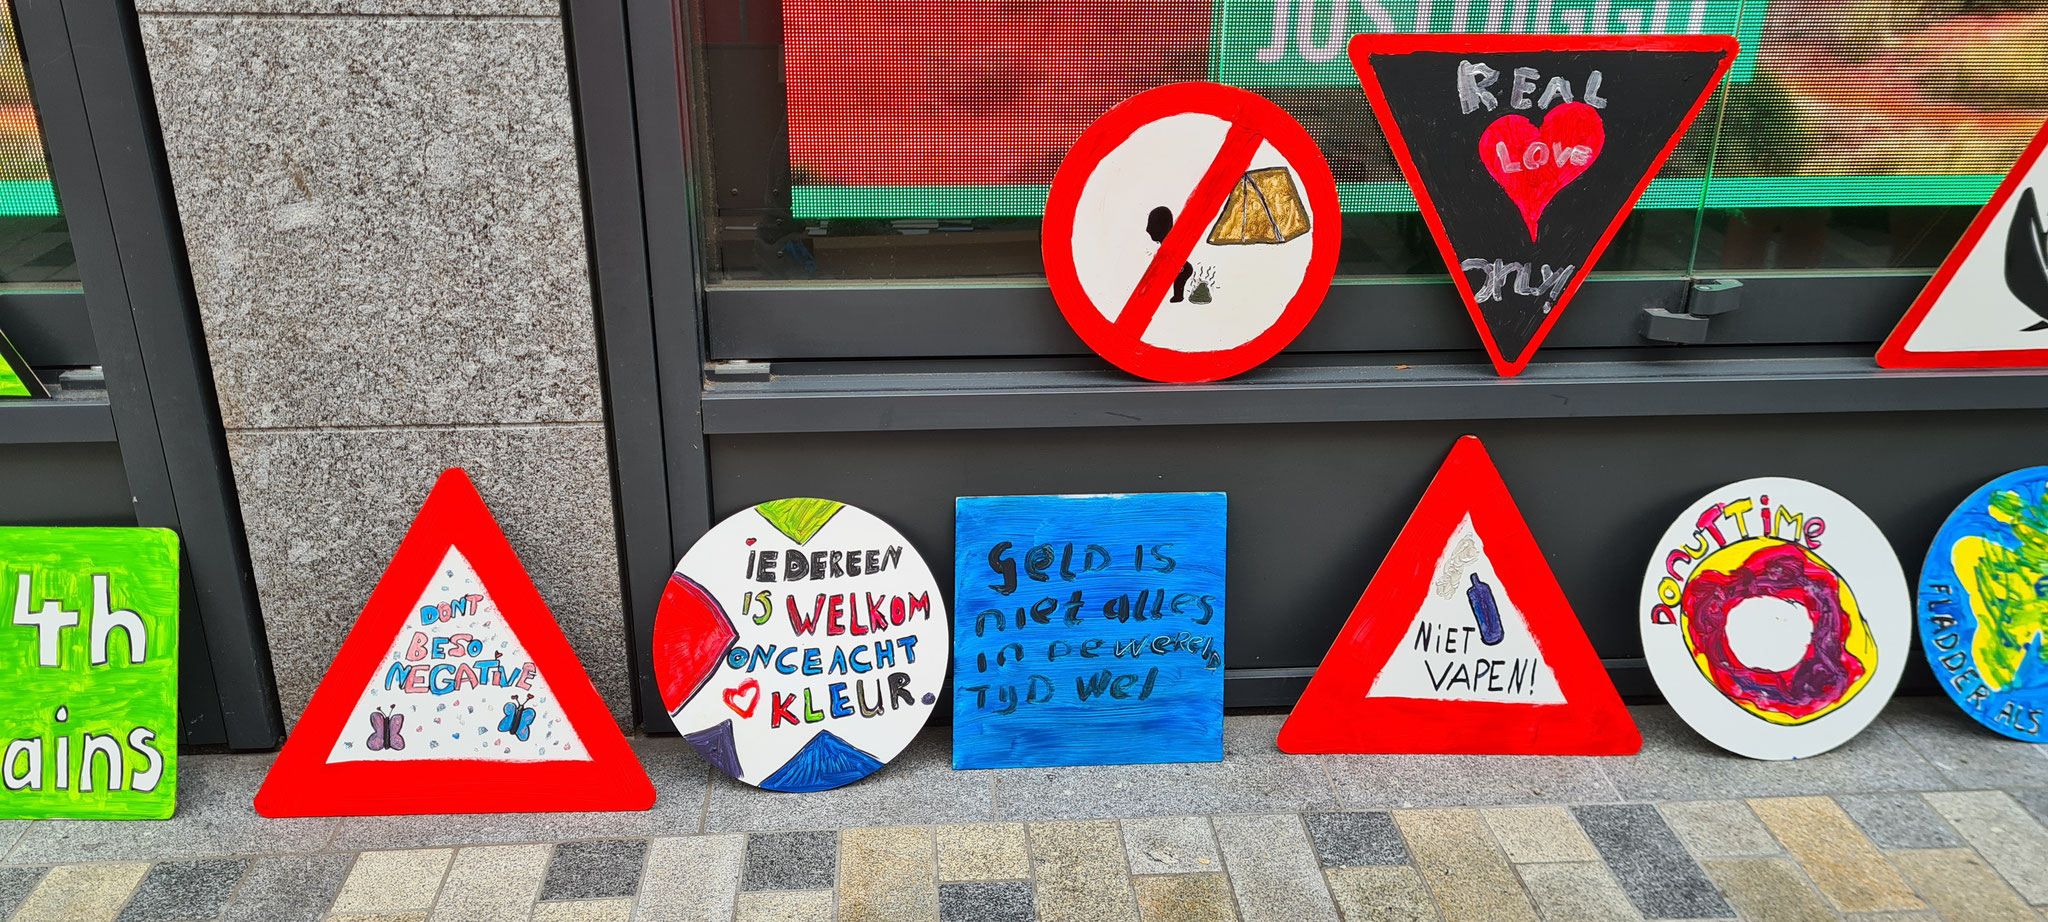 REAL
LOVE
ONLY!
4th
ains
DONT
BESO
NEGATIVE
iEDEREEN
IS WELKOM
ONGEACHT
KLEUR.
GELD IS
niet alles
in DE WERELD
TIJD Wel
NiET
VAPEN!
DONUT TiME
FLADDER ALS